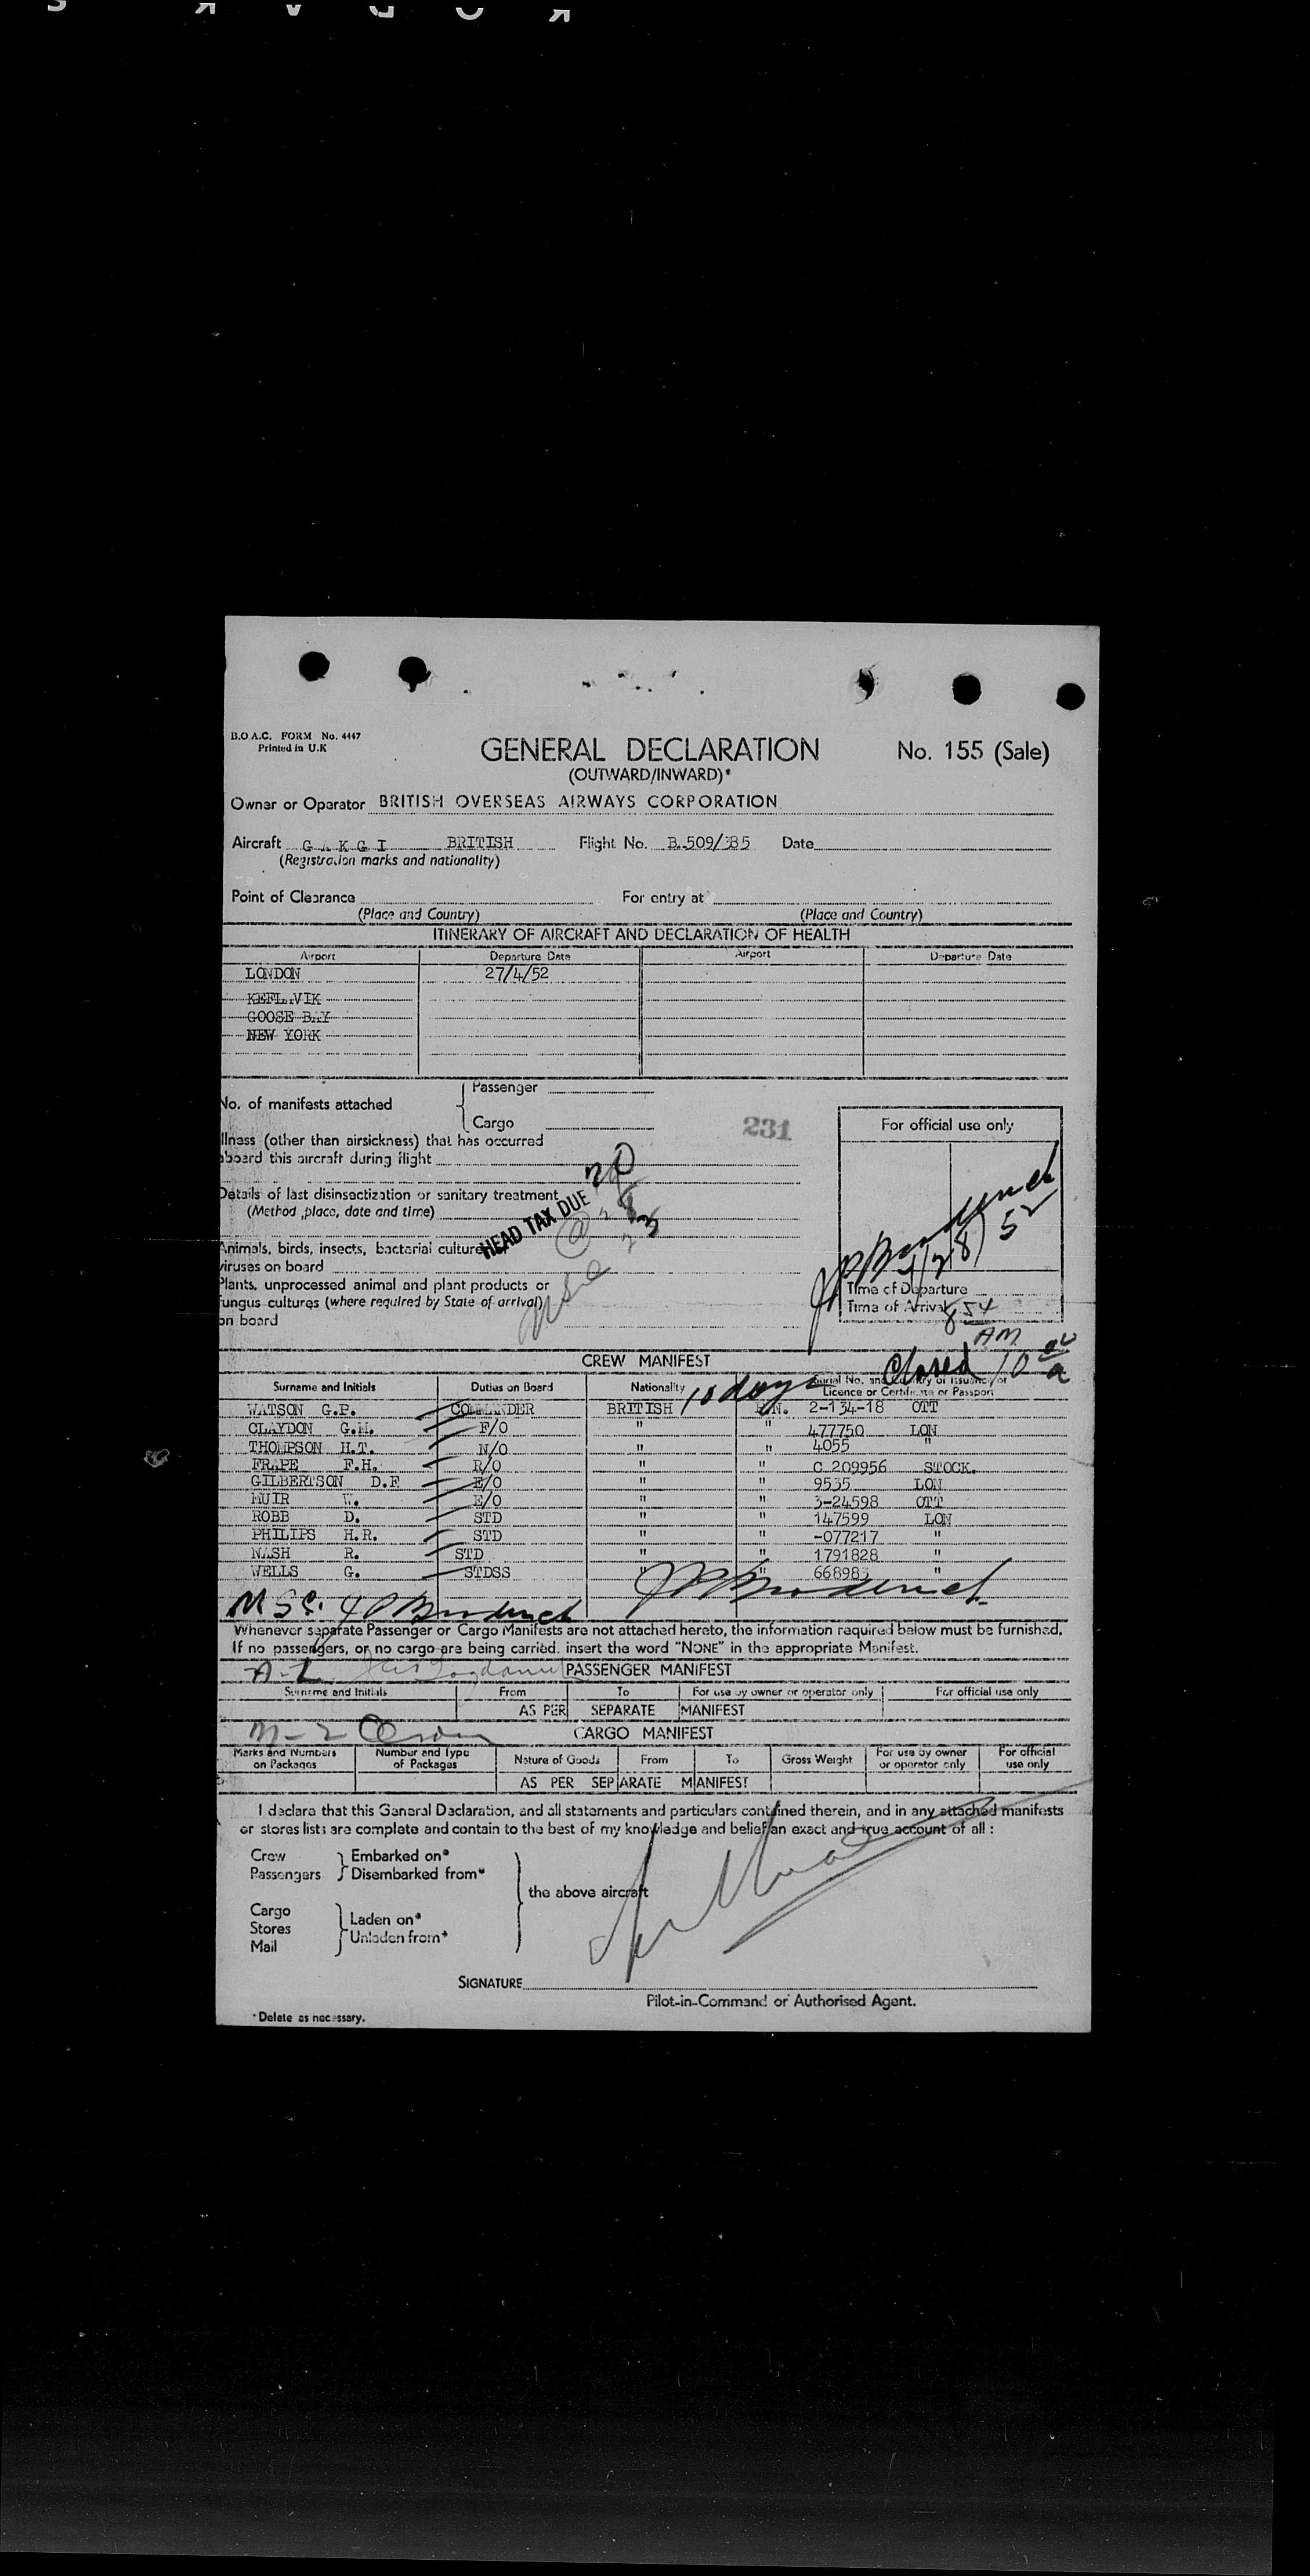 B.O.A.C. FORM No. 4447
Printed in U.K
GENERAL DECLARATION
No. 155 (Sale)
(OUTWARD/INWARD)*
Owner or Operator BRITISH OVERSEAS AIRWAYS CORPORATION
Aircraft G A K G I BRITISH Flight No. B.509/385 Date
(Registration marks and nationality)
Point of Clearance For entry at
(Place and Country) (Place and Country)
ITINERARY OF AIRCRAFT AND DECLARATION OF HEALTH
Airport Departure Date Airport Departure Date
LONDON 27/4/52
KEFLAVIK
GOOSE BAY
NEW YORK
Passenger
No. of manifests attached
Cargo
231
For official use only
Illness (other than airsickness) that has occurred
aboard this aircraft during flight
Details of last disinsectization or sanitary treatment
(Method, place, date and time)
HEAD TAX DUE
Animals, birds, insects, bacterial cultures
viruses on board
Plants, unprocessed animal and plant products or
fungus cultures (where required by State of arrival)
on board
4/28/52
Time of Departure
Time of Arrival 8 54
AM
Closed 10 00 a
CREW MANIFEST
Surname and Initials Duties on Board Nationality Serial No. and Country of Issuance of
Licence or Certificate or Passport
10 days
WATSON G.P. COMMANDER BRITISH 2-134-18 OTT
CLAYDON G.M. F/O " " 477750 LON
THOMPSON H.T. N/O " " 4055 "
FRAPE F.H. R/O " " C 209956 STOCK.
GILBERTSON D.F E/O " " 9535 LON
MUIR W. E/O " " 3-24598 OTT
ROBB D. STD " " 147599 LON
PHILIPS H.R. STD " " -077217 "
NASH R. STD " " 1791828 "
WELLS G. STDSS " " 668983 "
Whenever separate Passenger or Cargo Manifests are not attached hereto, the information required below must be furnished.
If no passengers, or no cargo are being carried. insert the word "NONE" in the appropriate Manifest.
PASSENGER MANIFEST
Surname and Initials From To For use by owner or operator only For official use only
AS PER SEPARATE MANIFEST
CARGO MANIFEST
Marks and Numbers on Packages Number and Type of Packages Nature of Goods From To Gross Weight For use by owner or operator only For official use only
AS PER SEPARATE MANIFEST
I declare that this General Declaration, and all statements and particulars contained therein, and in any attached manifests
or stores lists are complete and contain to the best of my knowledge and belief an exact and true account of all :
Crew Embarked on*
Passengers Disembarked from*
the above aircraft
Cargo
Stores Laden on*
Mail Unladen from*
SIGNATURE
Pilot-in-Command or Authorised Agent.
*Delete as necessary.